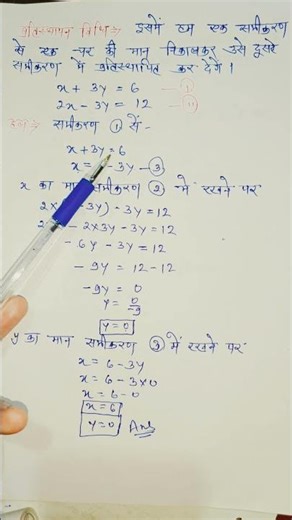 प्रतिस्थापन विधि:→ इसमें हम एक समीकरण
से एक चर की मान निकालकर उसे दूसरे
समीकरण में प्रतिस्थापित कर देंगे।
x + 3y = 6 — ①
2x - 3y = 12 — ⑪
समीकरण ① से -
x + 3y = 6
x = - 3y — ③
x का मान समीकरण ② में रखने पर
2x - 3y) - 3y = 12
- 2x3y - 3y = 12
- 6y - 3y = 12
- 9y = 12 - 12
- 9y = 0
y = 0/-9
y = 0
y का मान समीकरण ③ में रखने पर
x = 6 - 3y
x = 6 - 3x0
x = 6 - 0
x = 6
y = 0 Ans